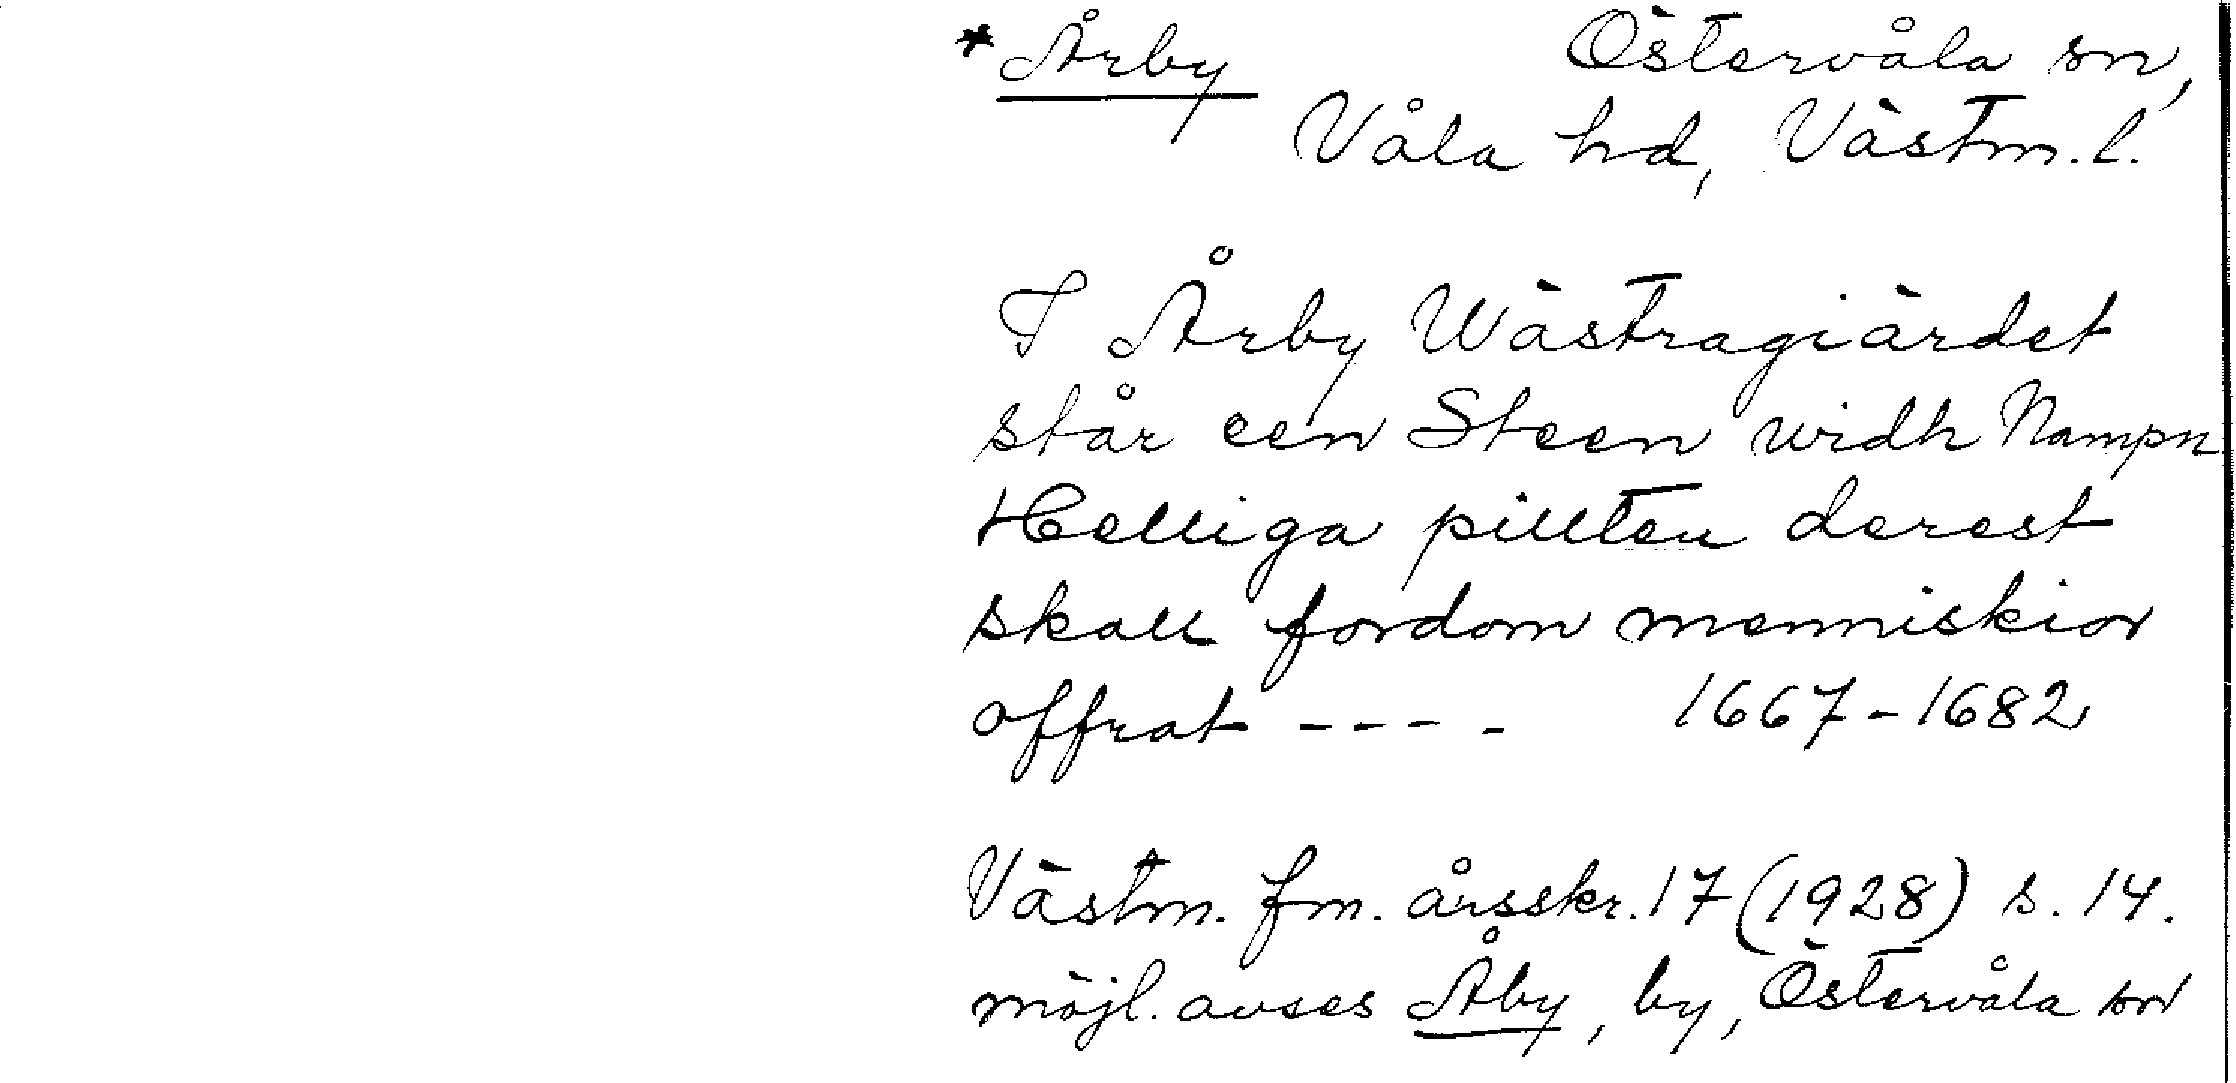 *Årby Östervåla sn,
Våla hd, Västm. l.
I Årby Wästragiärdet
står een Steen widh Nampn
Helliga pillten derest
skall fordom menniskior
offrat - - - -   1667-1682
Västm. fm. årsskr. 17 (1928) s. 14.
möjl. avses Åby, by, Östervåla sn